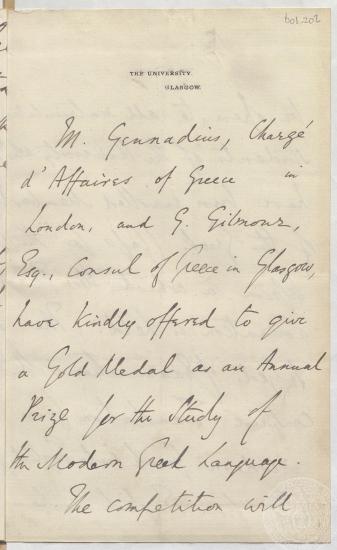 601.202
THE UNIVERSITY.
GLASGOW.
M. Gennadius, Chargé
d'Affaires of Greece in
London, and G. Gilmour,
Esq., Consul of Greece in Glasgow,
have kindly offered to give
a Gold Medal as an Annual
Prize for the Study of
the Modern Greek Language.
The competition will